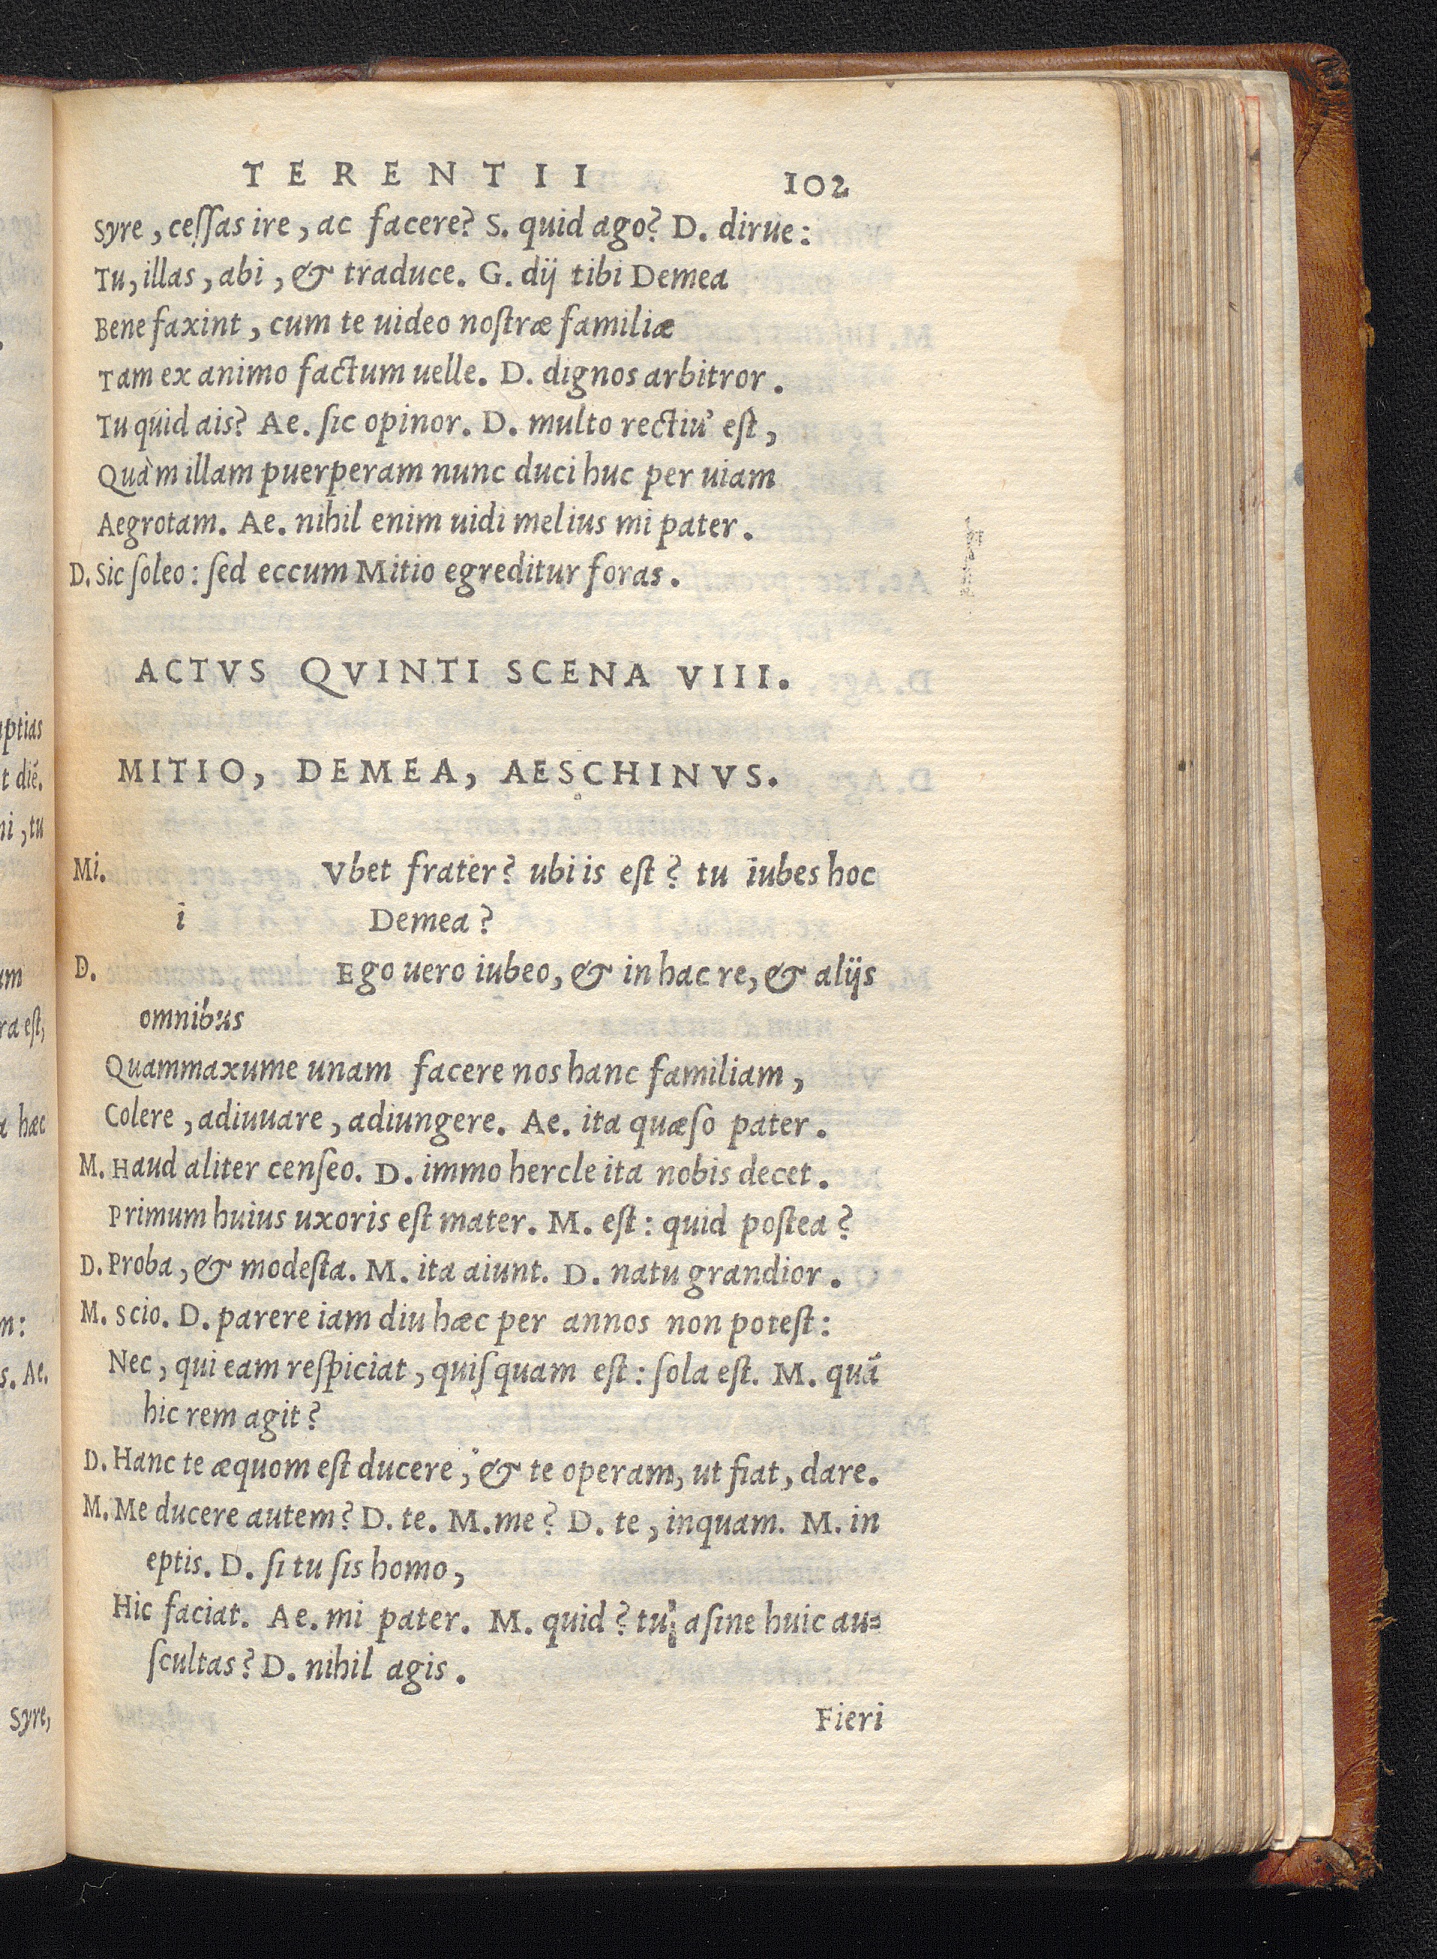 TERENTII 102
Syre, cessas ire, ac facere? S. quid ago? D. dirue:
Tu, illas, abi, & traduce. G. dij tibi Demea
Bene faxint, cum te uideo nostræ familiæ
Tam ex animo factum uelle. D. dignos arbitror.
Tu quid ais? Ae. sic opinor. D. multo rectiu' est,
Quàm illam puerperam nunc duci huc per uiam
Aegrotam. Ae. nihil enim uidi melius mi pater.
D. Sic soleo: sed eccum Mitio egreditur foras.
ACTVS QVINTI SCENA VIII.
MITIO, DEMEA, AESCHINVS.
Mi. Vbet frater? ubi is est? tu iubes hoc
i Demea?
D. Ego uero iubeo, & in hac re, & alijs
omnibus
Quammaxume unam facere nos hanc familiam,
Colere, adiuuare, adiungere. Ae. ita quæso pater.
M. Haud aliter censeo. D. immo hercle ita nobis decet.
Primum huius uxoris est mater. M. est: quid postea?
D. Proba, & modesta. M. ita aiunt. D. natu grandior.
M. scio. D. parere iam diu hæc per annos non potest:
Nec, qui eam respiciat, quisquam est: sola est. M. quã
hic rem agit?
D. Hanc te æquom est ducere, & te operam, ut fiat, dare.
M. Me ducere autem? D. te. M. me? D. te, inquam. M. in
eptis. D. si tu sis homo,
Hic faciat. Ae. mi pater. M. quid? tu; asine huic au=
scultas? D. nihil agis.
Fieri
uptias
t diẽ.
ni, tu
um
ra est,
a hæc
m:
s. Ae.
Syre,